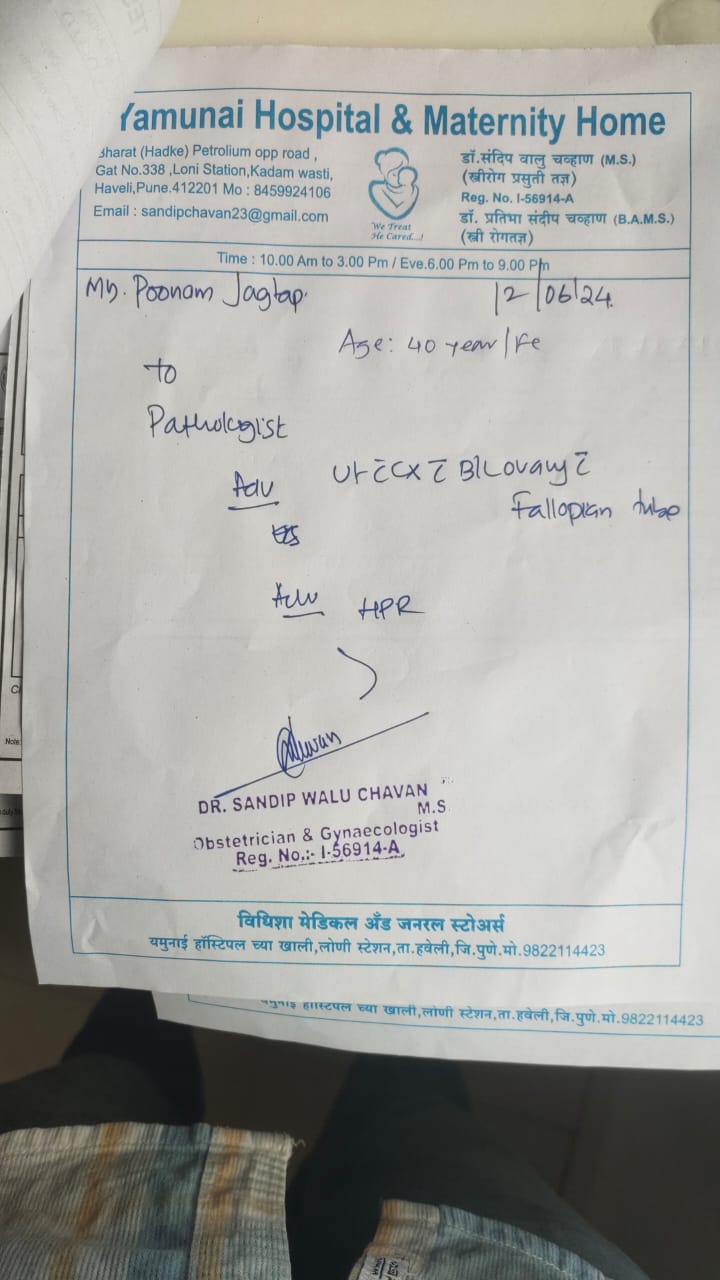 Yamunai Hospital & Maternity Home
Bharat (Hadke) Petrolium opp road ,
Gat No.338 ,Loni Station,Kadam wasti,
Haveli,Pune.412201 Mo : 8459924106
Email : sandipchavan23@gmail.com
We Treat
He Cared....!
डॉ.संदिप वालु चव्हाण (M.S.)
(स्त्रीरोग प्रसुती तज्ञ)
Reg. No. I-56914-A
डॉ. प्रतिभा संदीप चव्हाण (B.A.M.S.)
(स्त्री रोगतज्ञ)
Time : 10.00 Am to 3.00 Pm / Eve.6.00 Pm to 9.00 Pm
Poonam Jagtap
12/06/24
Age: 40 year/Fe
to
Pathologist
Adv
Ut c̄ CX c̄ B/L ovary c̄
Fallopian tube
Adv HPR
DR. SANDIP WALU CHAVAN
M.S.
Obstetrician & Gynaecologist
Reg. No.:- I-56914-A
विधिशा मेडिकल अँड जनरल स्टोअर्स
यमुनाई हॉस्टिपल च्या खाली,लोणी स्टेशन,ता.हवेली,जि.पुणे.मो.9822114423
यमुनाई हॉस्टिपल च्या खाली,लोणी स्टेशन,ता.हवेली,जि.पुणे.मो.9822114423
Note: